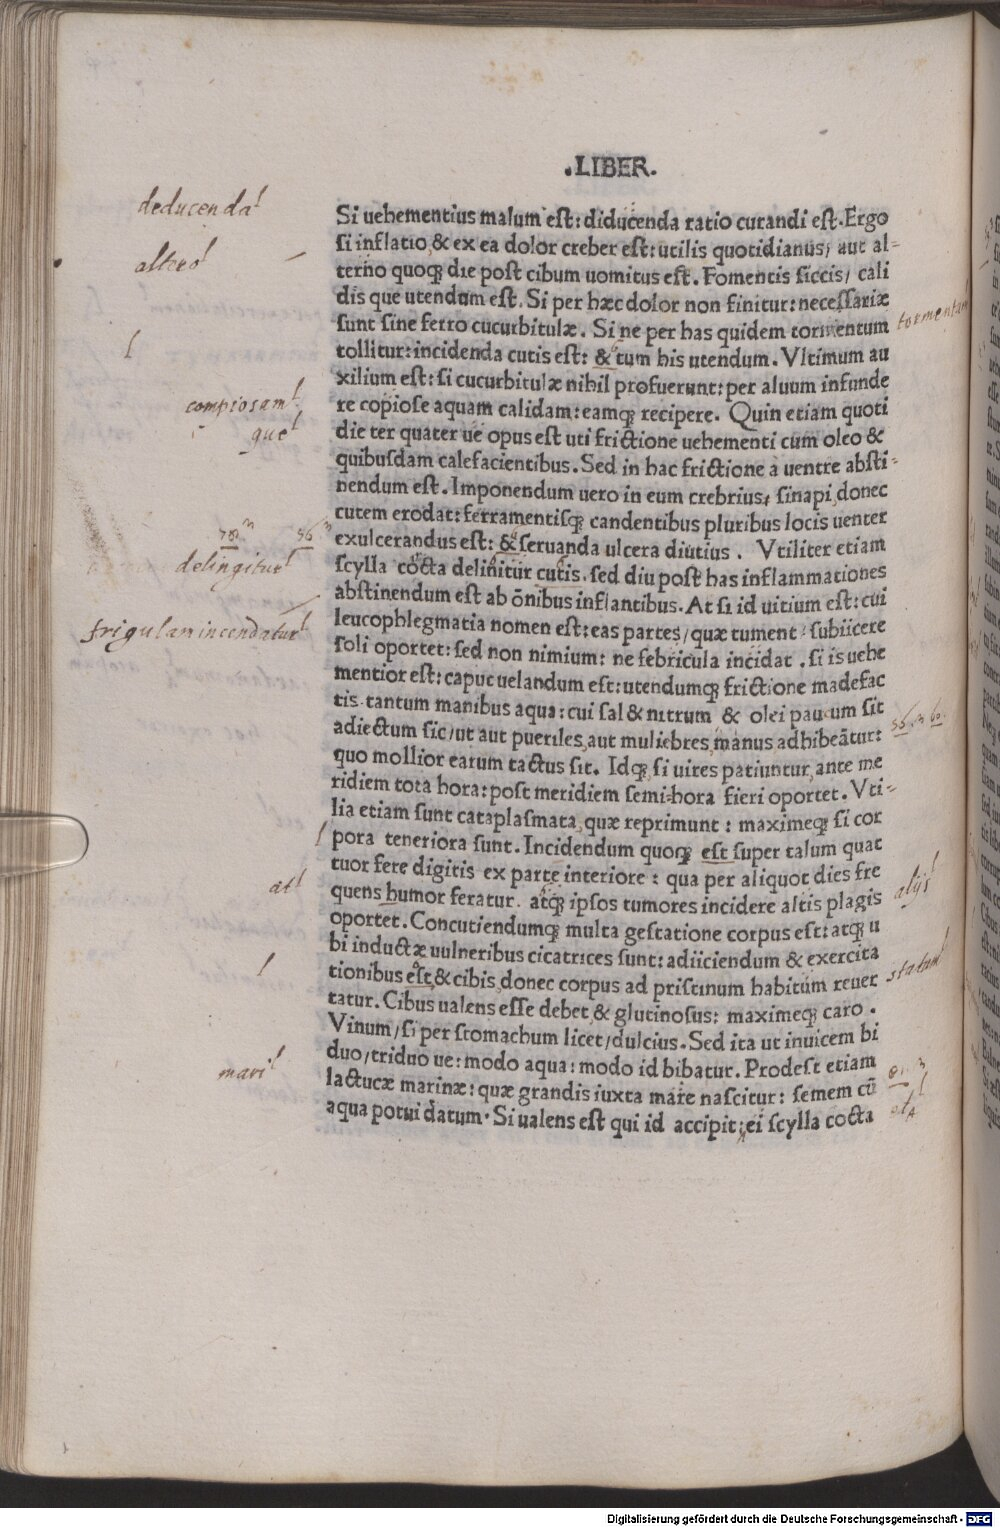 .LIBER.
Si uehementius malum est: diducenda ratio curandi est. Ergo
si inflatio, & ex ea dolor creber est: utilis quotidianus/ aut al-
terno quoqꝫ die post cibum uomitus est. Fomentis siccis/ cali
dis que utendum est. Si per hæc dolor non finitur: necessariæ
sunt sine ferro cucurbitulæ. Si ne per has quidem tormentum
tollitur: incidenda cutis est: & tum his utendum. Vltimum au
xilium est: si cucurbitulæ nihil profuerunt: per aluum infunde
re copiose aquam calidam: eamqꝫ recipere. Quin etiam quoti
die ter quater ue opus est uti frictione uehementi cum oleo &
quibusdam calefacientibus. Sed in hac frictione a uentre absti-
nendum est. Imponendum uero in eum crebrius, sinapi, donec
cutem erodat: ferramentisqꝫ candentibus pluribus locis uenter
exulcerandus est: & seruanda ulcera diutius. Vtiliter etiam
scylla cocta delinitur cutis. sed diu post has inflammationes
abstinendum est ab oñibus inflantibus. At si id uitium est: cui
leucophlegmatia nomen est: eas partes/ quæ tument/ subiicere
soli oportet: sed non nimium: ne febricula incidat. si is uehe
mentior est: caput uelandum est: utendumqꝫ frictione madefac
tis tantum manibus aqua: cui sal & nitrum & olei paucum sit
adiectum sic/ ut aut pueriles, aut muliebres, manus adhibeãtur:
quo mollior earum tactus sit. Idqꝫ, si uires patiuntur, ante me
ridiem tota hora: post meridiem semi-hora fieri oportet. Vti-
lia etiam sunt cataplasmata, quæ reprimunt: maximeqꝫ si cor
pora teneriora sunt. Incidendum quoqꝫ est super talum quat
tuor fere digitis ex parte interiore: qua per aliquot dies fre
quens humor feratur. atqꝫ ipsos tumores incidere altis plagis
oportet. Concutiendumqꝫ multa gestatione corpus est: atqꝫ u
bi inductæ uulneribus cicatrices sunt: adiiciendum & exercita
tionibus est, & cibis, donec corpus ad pristinum habitum reuer
tatur. Cibus ualens esse debet, & glutinosus: maximeqꝫ caro.
Vinum/ si per stomachum licet/ dulcius. Sed ita ut inuicem bi
duo/ triduo ue: modo aqua: modo id bibatur. Prodest etiam
lactucæ marinæ: quæ grandis iuxta mare nascitur: semem cũ
aqua potui datum. Si ualens est qui id accipit: ei scylla cocta
deducenda
altero
tormentum
que
delingitur
frigulam incendatur
at
alijs
statum
mari
Digitalisierung gefördert durch die Deutsche Forschungsgemeinschaft - DFG